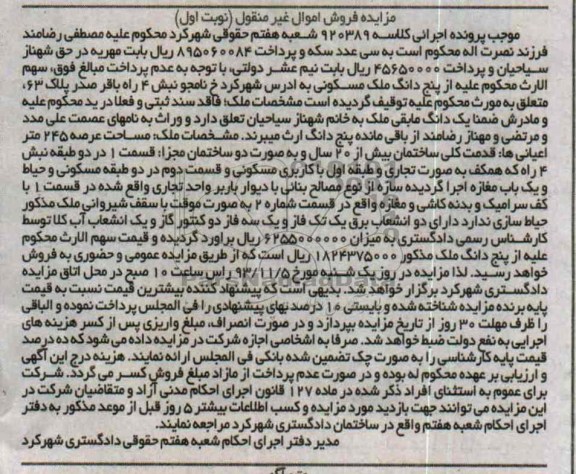 مزایده فروش اموال غیر منقول (نوبت اول)
موجب پرونده اجرائی کلاسه ۹۲۰۳۸۹ شعبه هفتم حقوقی شهرکرد محکوم علیه مصطفی رضامند
فرزند نصرت اله محکوم است به سی عدد سکه و پرداخت ۸۹۵۰۶۰۰۸۴ ریال بابت مهریه در حق شهناز
سیاحیان و پرداخت ۴۵۶۵۰۰۰۰ ریال بابت نیم عشر دولتی، با توجه به عدم پرداخت مبالغ فوق، سهم
الارث محکوم علیه از پنج دانگ ملک مسکونی به ادرس شهرکرد خ نامجو نبش ۴ راه باقر صدر پلاک ۶۳،
متعلق به مورث محکوم علیه توقیف گردیده است مشخصات ملک: فاقد سند ثبتی و فعلا در ید محکوم علیه
و مادرش ضمنا یک دانگ مابقی ملک به خانم شهناز سیاحیان تعلق دارد و وراث به نامهای عصمت علی مدد
و مرتضی و مهناز رضامند از باقی مانده پنج دانگ ارث میبرند. مشخصات ملک: مساحت عرصه ۲۴۵ متر
اعیانی ها: قدمت کلی ساختمان بیش از ۲۰ سال و به صورت دو ساختمان مجزا: قسمت ۱ در دو طبقه نبش
۴ راه که همکف به صورت تجاری و طبقه اول با کاربری مسکونی و قسمت دوم در دو طبقه مسکونی و حیاط
و یک باب مغازه اجرا گردیده سازه از نوع مصالح بنائی با دیوار باربر واحد تجاری واقع شده در قسمت ۱ با
کف سرامیک و بدنه کاشی و مغازه واقع در قسمت شماره ۲ به صورت موقت با سقف شیروانی ملک مذکور
حیاط سازی ندارد دارای دو انشعاب برق یک تک فاز و یک سه فاز دو کنتور گاز و یک انشعاب آب کلا توسط
کارشناس رسمی دادگستری به میزان ۶۲۵۵۰۰۰۰۰۰ ریال براورد گردیده و قیمت سهم الارث محکوم
علیه از پنج دانگ ملک مذکور ۱۸۲۴۳۷۵۰۰۰ ریال است که از طریق مزایده عمومی و حضوری به فروش
خواهد رسید. لذا مزایده در روز یک شنبه مورخ ۹۳/۱۱/۵ راس ساعت ۱۰ صبح در محل اتاق مزایده
دادگستری شهرکرد برگزار خواهد شد. بدیهی است که پیشنهاد کننده بیشترین قیمت نسبت به قیمت
پایه برنده مزایده شناخته شده و بایستی ۱۰ درصد بهای پیشنهادی را فی المجلس پرداخت نموده و الباقی
را ظرف مهلت ۳۰ روز از تاریخ مزایده بپردازد و در صورت انصراف، مبلغ واریزی پس از کسر هزینه های
اجرایی به نفع دولت ضبط خواهد شد. صرفا به اشخاصی اجازه شرکت در مزایده داده می شود که ده درصد
قیمت پایه کارشناسی را به صورت چک تضمین شده بانکی فی المجلس ارائه نمایند. هزینه درج این آگهی
و ارزیابی بر عهده محکوم له بوده و در صورت عدم پرداخت از مازاد مبلغ فروش کسر می گردد. شرکت
برای عموم به استثنای افراد ذکر شده در ماده ۱۲۷ قانون اجرای احکام مدنی آزاد و متقاضیان شرکت در
این مزایده می توانند جهت بازدید مورد مزایده و کسب اطلاعات بیشتر ۵ روز قبل از موعد مذکور به دفتر
اجرای احکام شعبه هفتم واقع در ساختمان دادگستری شهرکرد مراجعه نمایند.
مدیر دفتر اجرای احکام شعبه هفتم حقوقی دادگستری شهرکرد